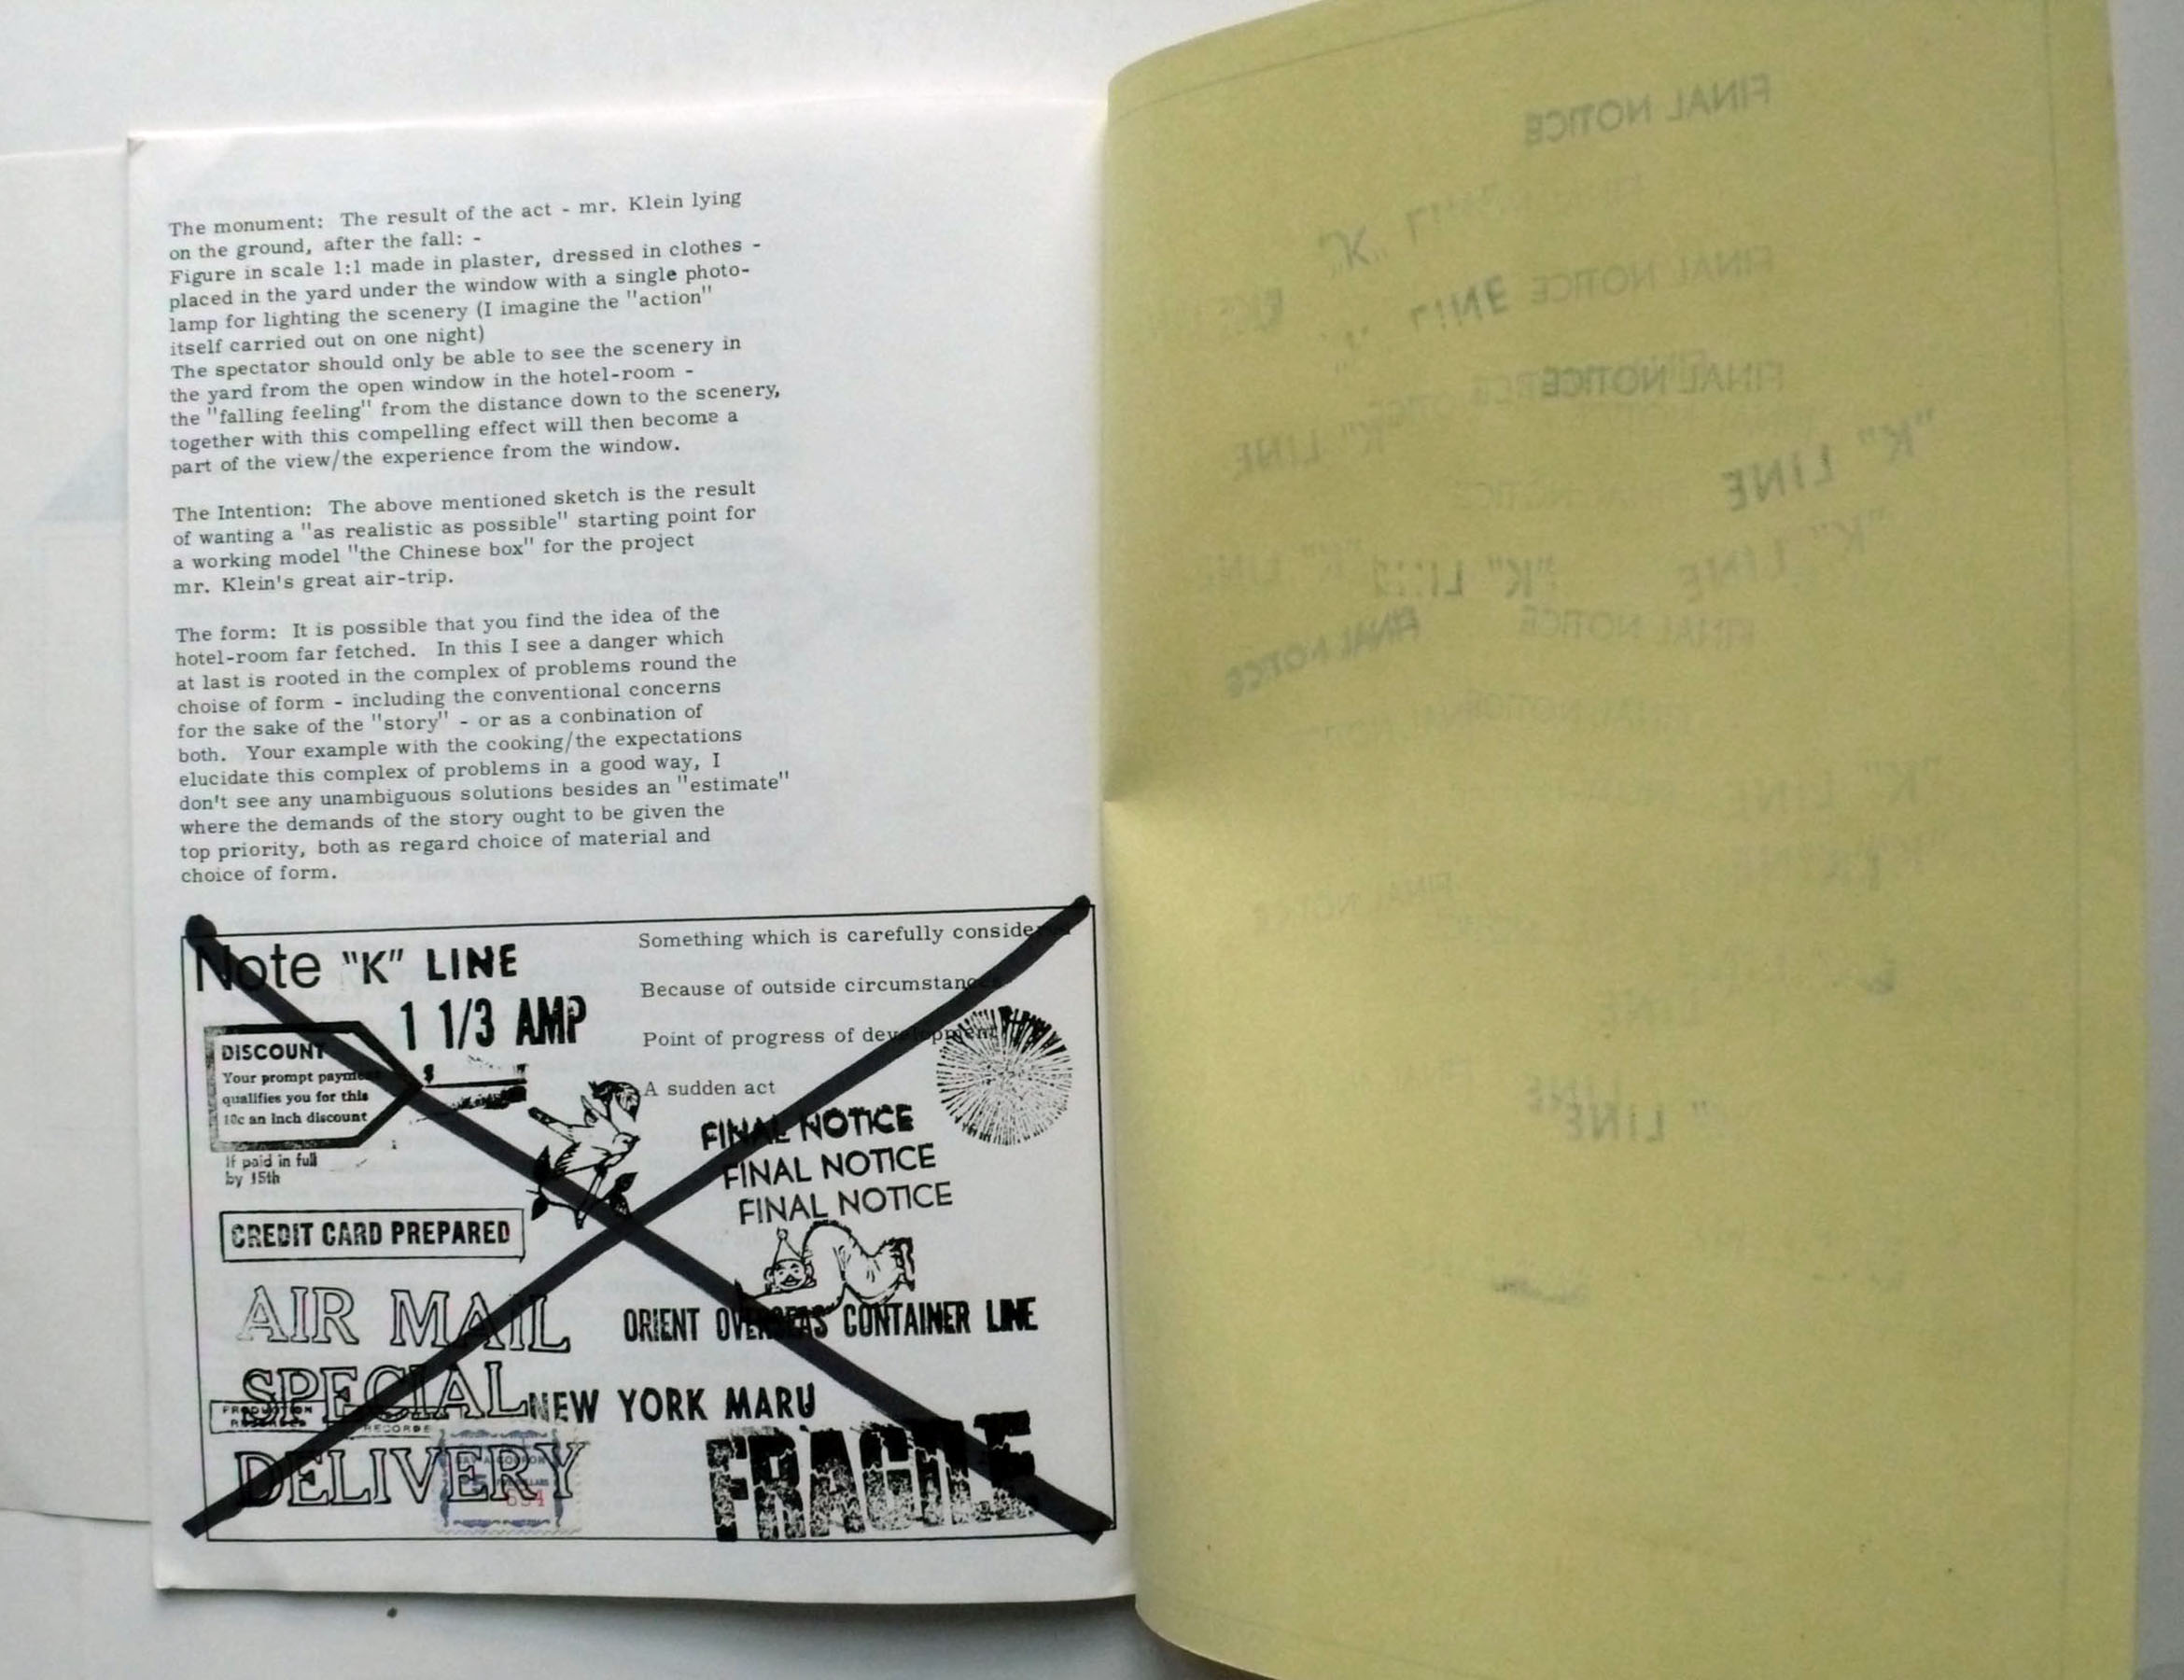 The monument: The result of the act - mr. Klein lying
on the ground, after the fall: -
Figure in scale 1:1 made in plaster, dressed in clothes -
placed in the yard under the window with a single photo-
lamp for lighting the scenery (I imagine the "action"
itself carried out on one night)
The spectator should only be able to see the scenery in
the yard from the open window in the hotel-room -
the "falling feeling" from the distance down to the scenery,
together with this compelling effect will then become a
part of the view/the experience from the window.
The Intention: The above mentioned sketch is the result
of wanting a "as realistic as possible" starting point for
a working model "the Chinese box" for the project
mr. Klein's great air-trip.
The form: It is possible that you find the idea of the
hotel-room far fetched. In this I see a danger which
at last is rooted in the complex of problems round the
choise of form - including the conventional concerns
for the sake of the "story" - or as a conbination of
both. Your example with the cooking/the expectations
elucidate this complex of problems in a good way, I
don't see any unambiguous solutions besides an "estimate"
where the demands of the story ought to be given the
top priority, both as regard choice of material and
choice of form.
Note "K" LINE
1 1/3 AMP
Something which is carefully
Because of outside
Point of progress of development
A sudden act
DISCOUNT
Your prompt payment
qualifies you for this
10c an inch discount
If paid in full
by 15th
FINAL NOTICE
FINAL NOTICE
FINAL NOTICE
CREDIT CARD PREPARED
AIR MAIL
SPECIAL
DELIVERY
ORIENT OVERSEAS CONTAINER LINE
NEW YORK MARU
PRODUCTION
FRAGILE
FINAL NOTICE
"K"
FINAL NOTICE
LINE
FINAL NOTICE
"K" LINE
"K" LINE
"K" LINE
"K" LINE
FINAL NOTICE
FINAL NOTICE
"K" LINE
FINAL NOTICE
LINE